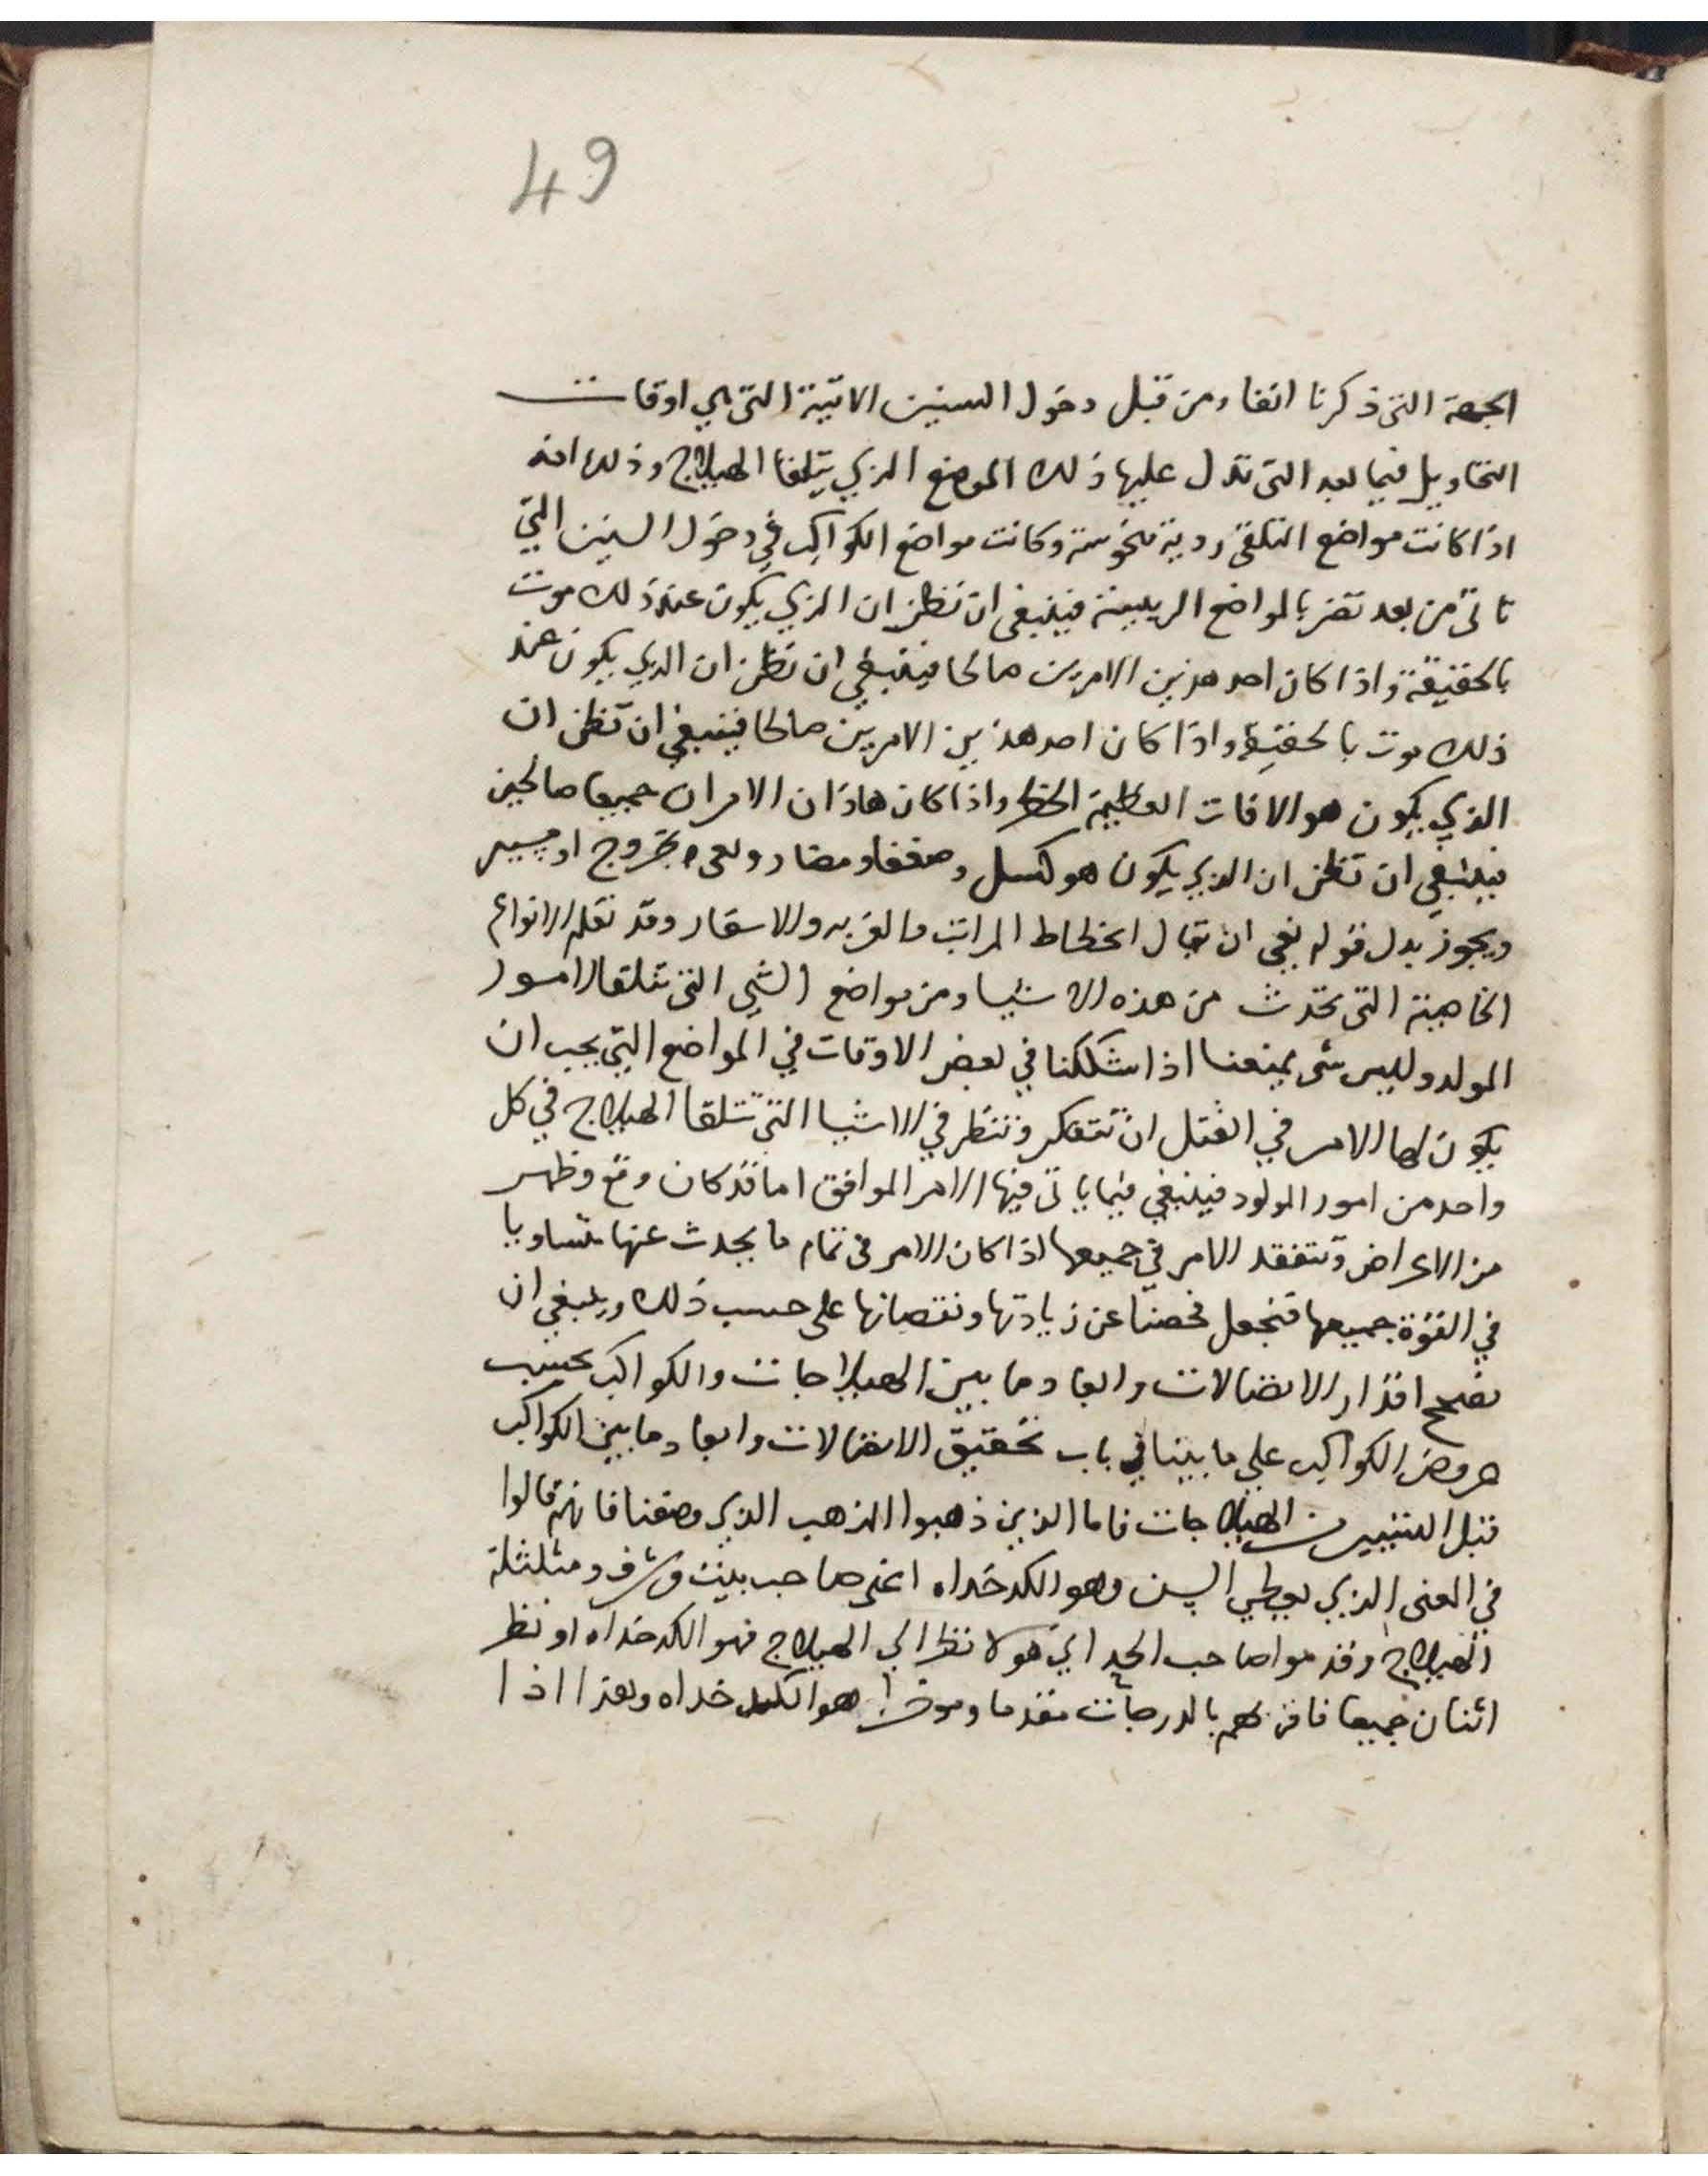 49
الجهة التى ذكرنا انفا ومن قبل دخول السنين الاتية التى هي اوقات
التحاويل فيما بعد التى تدل عليها ذلك الموضع الذي يتلقا الهيلاج وذلك انه
اذا كانت مواضع التلقى ردية منحوسة وكانت مواضع الكواكب في دخول السنين التي
تاتى من بعد تضر بالمواضع الرييسة فينبغى ان نظن ان الذي يكون عند ذلك موت
بالحقيقة واذا كان احد هذين الامرين صالحا فينبغي ان نظن ان الذي يكون عند
ذلك موت بالحقيقة واذا كان احد هذين الامرين صالحا فينبغي ان تظن ان
الذي يكون هو الافات العظيمة الخطر واذا كان هاذان الامران جميعا صالحين
فينبغي ان تظن ان الذي يكون هو كسل وضعفا ومضار و بخروج او مسير
ويجوز بدل قوله ان تقال انحطاط المراتب والاسقار وقد نقله الانواع
الخاصية التى تحدث من هذه الاشيا ومن مواضع الشي التى تتلقا الامور
المولد وليس شى يمنعنا اذا شككنا في بعض الاوقات في المواضع التي يجب ان
يكون لها الامر في القتل ان نتفكر وننظر في الاشيا التى تتلقا الهيلاج في كل
واحد من امور المولود فينبغي فيما ياتى فيها الامر الموافق اما قد كان وقع وظهر
من الاعراض ونتفقد الامر في جميعها اذا كان الامر فى تمام ما يحدث عنها متساويا
في القوة جميعها فنجعل فحصنا عن زيادتها ونقصانها على حسب ذلك وينبغي ان
نصحح اقدار الاتصالات وابعاد ما بين الهيلاجات والكواكب بحسب
عروض الكواكب علي ما بينا في باب تحقيق الاتصالات وابعاد ما بين الكواكب
قبل التسيير الهيلاجات فاما الذين ذهبوا المذهب الذي وصفنا فانهم قالوا
في المعنى الذي يعطي السن وهو الكدخداه اعنى صاحب بيت وشرف ومثلثة
الهيلاج وقدموا صاحب الحد اي هولا نظر الي الهيلاج فهو الكدخداه او نظر
اثنان جميعا فاقربهم بالدرجات مقدما وموخرا هو الكدخداه وبعد اذا